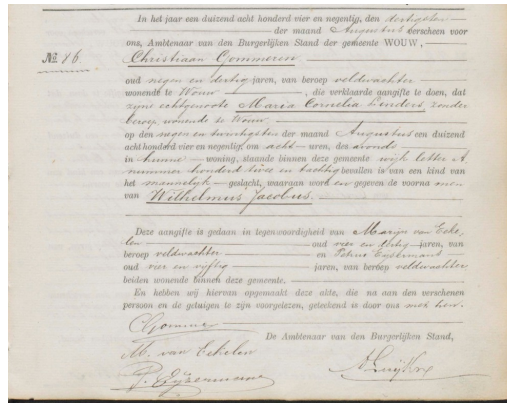 In het jaar een duizend acht honderd vier en negentig, den dertigsten
der maand Augustus verscheen voor
ons, Ambtenaar van den Burgerlijken Stand der gemeente WOUW,
No. 86.
Christiaan Gommeren
oud negen en dertig jaren, van beroep veldwachter
wonende te Wouw, die verklaarde aangifte te doen, dat
zijne echtgenoote Maria Cornelia Linders zonder
beroep wonende te Wouw
op den negen en twintigsten der maand Augustus een duizend
acht honderd vier en negentig, om acht uren, des avonds
in hunne woning, staande binnen deze gemeente wijk letter A
nummer honderd twee en tachtig bevallen is van een kind van
het mannelijk geslacht, waaraan wordt gegeven de voorna men
van Wilhelmus Jacobus.
Deze aangifte is gedaan in tegenwoordigheid van Marijn van Eeke,
len oud vier en dertig jaren, van
beroep veldwachter en Petrus Eijzermans
oud vier en vijftig jaren, van beroep veldwachter
beiden wonende binnen deze gemeente.
En hebben wij hiervan opgemaakt deze akte, die na aan den verschenen
persoon en de getuigen te zijn voorgelezen, geteekend is door ons met hen.
C Gommer
De Ambtenaar van den Burgerlijken Stand,
M. van Eekelen
P. Eijzermans